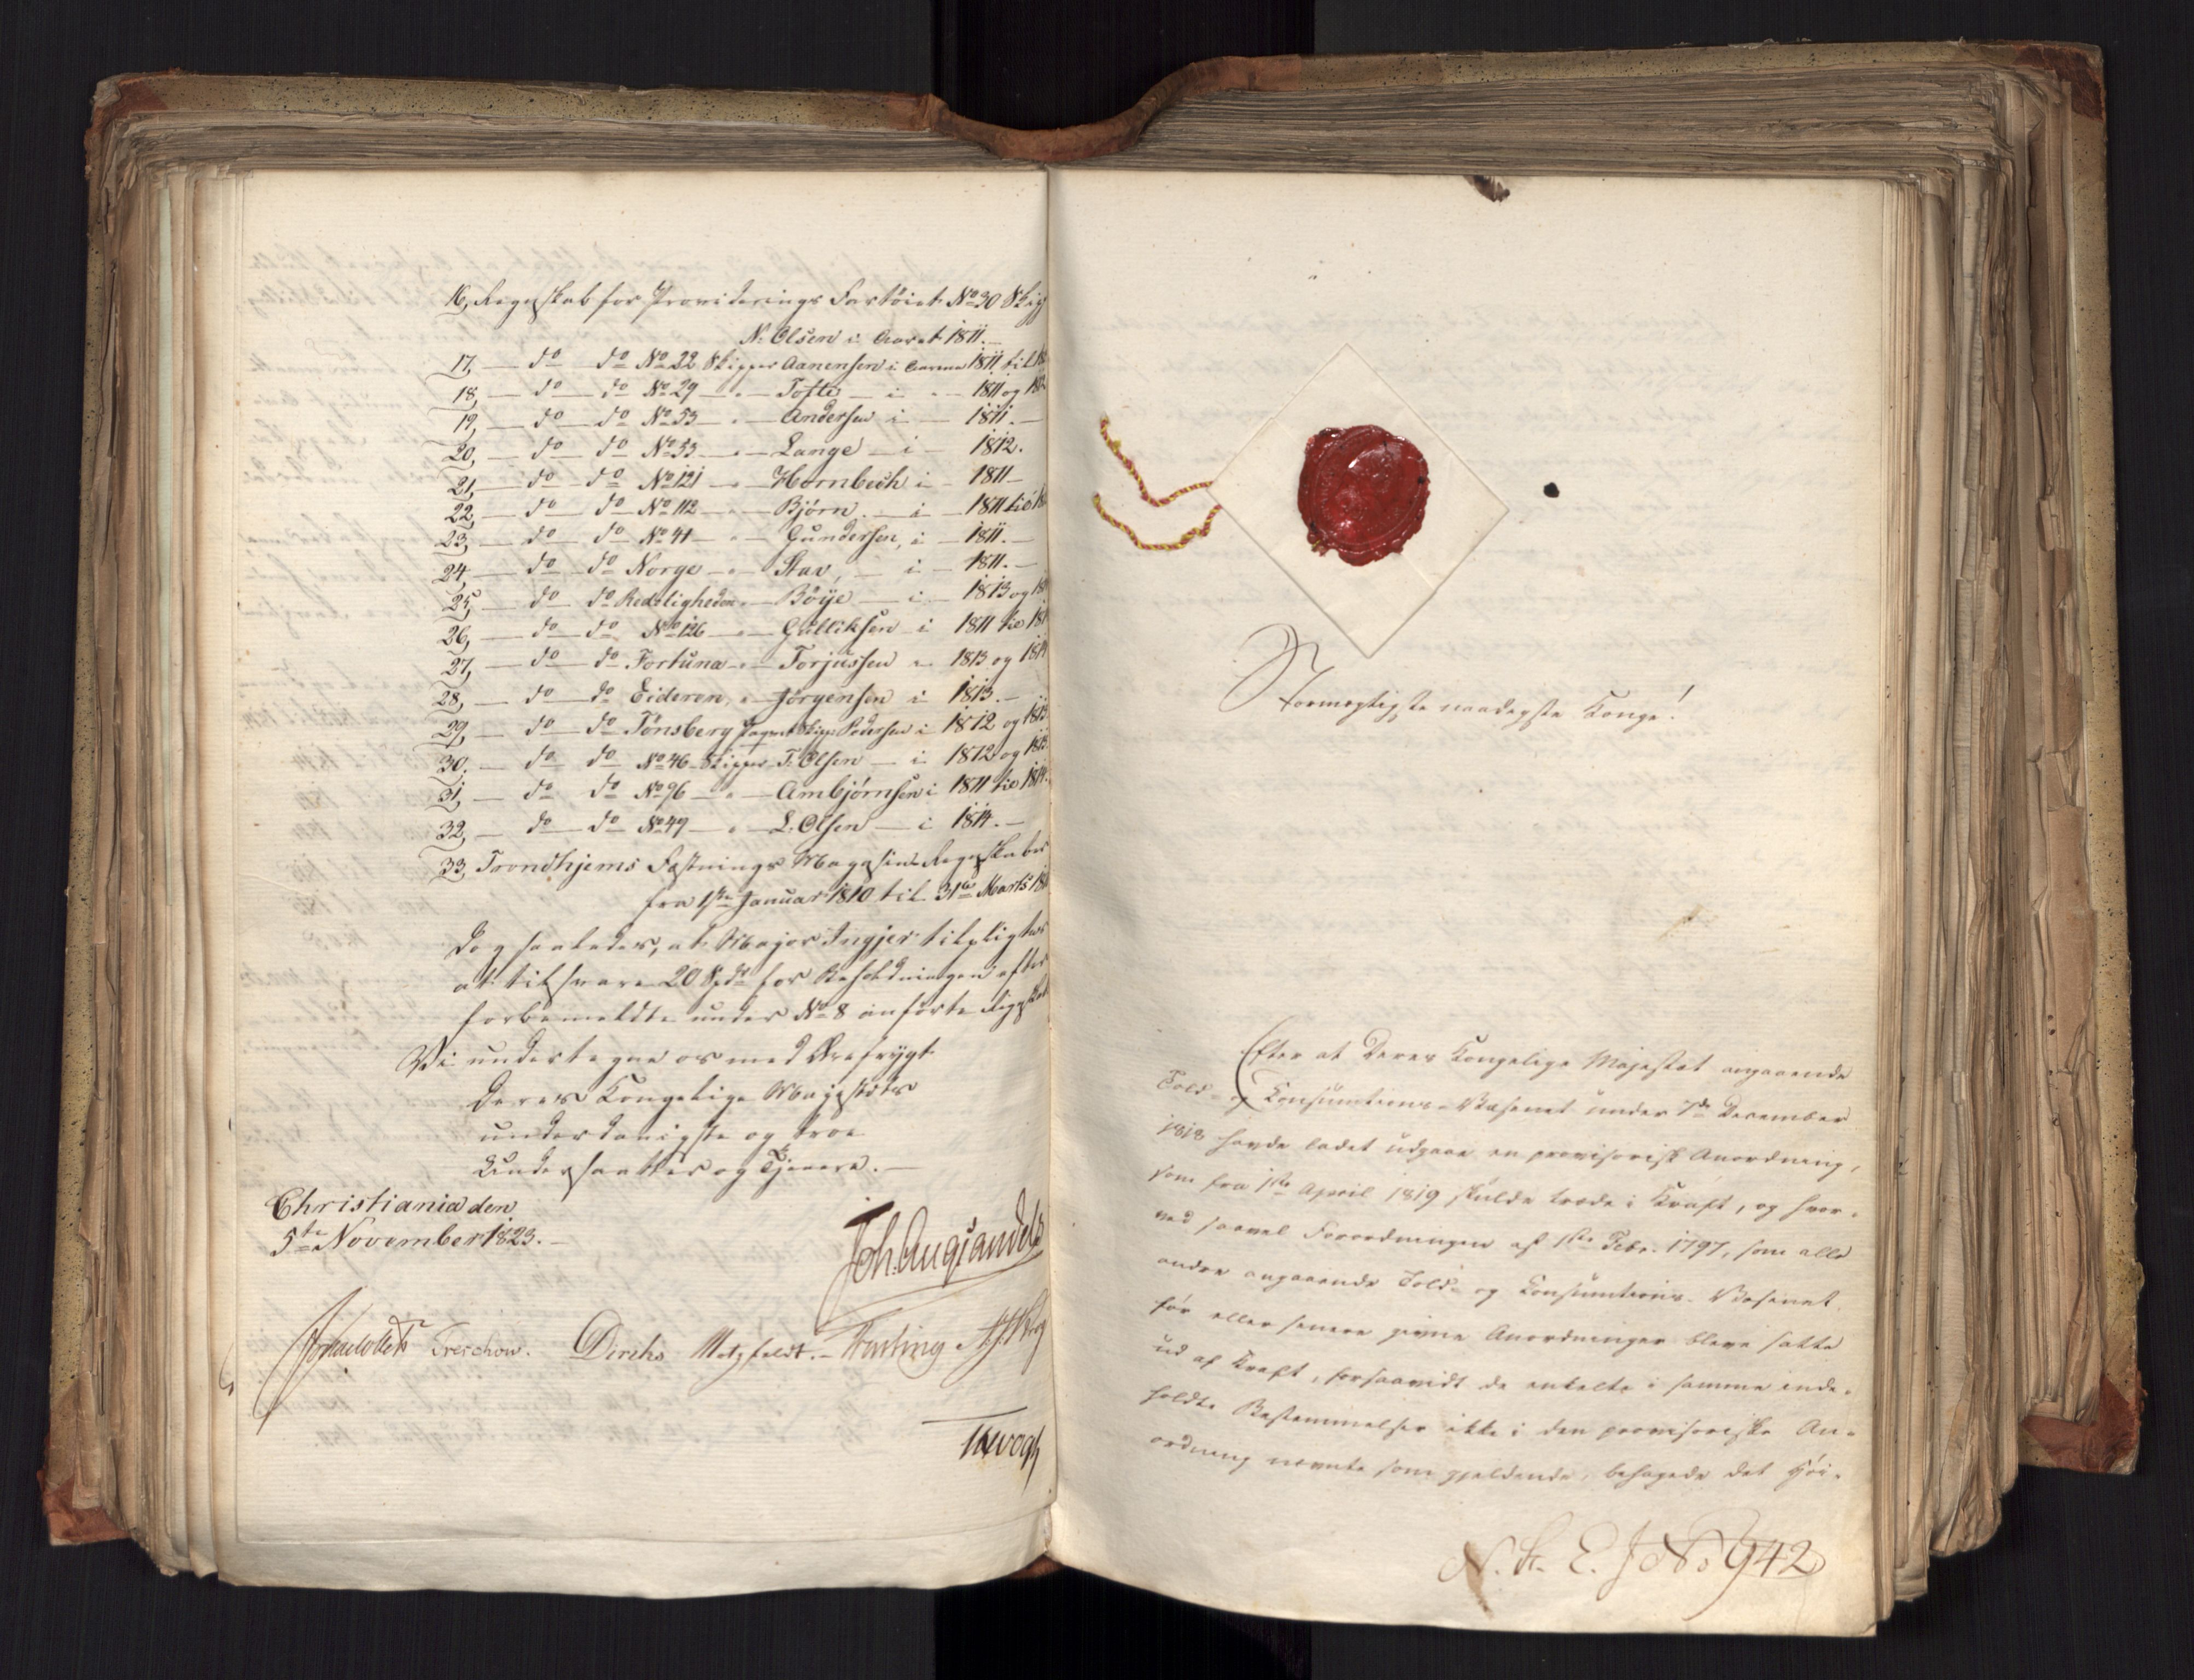 16, Regnskab for Providerings Fartöiet No 30 Skipp
N. Olsen i Aaret 1811.
17, — do — do No 22 Skipper Aanensen i Aarene 1811 til
18, — do — do No 29 — " — Tofte — i — 1811 og 1812
19, — do — do No 53 — " — Andersen i — 1811. —
20, — do — do No 53 — " — Lange — i — 1812.
21, — do — do No 121 — " — Hornbech i — 1811 —
22, — do — do No 112 — " — Björn — i — 1811 til
23, — do — do No 41 — " — Gundersen, i — 1811. —
24, — do — do Norge — " — Stav, — i — 1811. —
25, — do — do Redeligheden " — Böye — i — 1813 og
26, — do — do No 126 — " — Gulliksen — i 1811 til
27, — do — do Fortuna — " — Torjussen " 1813 og 1814
28, — do — do Eideren, " — Jörgensen i 1813. —
29, — do — do Tönsberg Skipp. Pedersen i 1812 og 1813
30. — do — do No 46 Skipper T. Olsen — i 1812 og 1813.
31, — do — do No 96 — " — Ambjörnsen i 1811 til 1814.
32, — do — do No 49 — " — L. Olsen — i 1814. —
33, Trondhjems Fæstnings Magasin Regnskaber
fra 1ste Januar 1810 til 31te Marts
dog saaledes, at Major Ingier tilpligtes
at tilsvare 20 Spdr for Beholdningen efter
forbemeldte under No 8 anförte Regnskab
Vi undertegne os med Ærefrygt
Deres Kongelige Majestæts
underdanigste og troe
Undersaatter og Tjenere. —
Christiania den
5te November 1823. —
Joh. Aug. Sandels
Treschow. Diriks Motzfeldt. — Fasting
Stormægtigste naadigste Konge!
Efter at Deres Kongelige Majestæt angaaende
Told- og Consumtions-Væsenet under 7de December
1818 havde ladet udgaae en provisorisk Anordning,
som fra 1ste April 1819 skulde træde i Kraft, og hvor-
ved saavel Forordningen af 1ste Febr. 1797, som alle
andre angaaende Told- og Consumtions-Væsenet
för eller senere givne Anordninger bleve satte
ud af Kraft, forsaavidt de enkelte i samme inde-
holdte Bestemmelser ikke i den provisoriske An-
ordning nævnte som gjeldende, behagede det Höi-
N. St. E. J. No 942